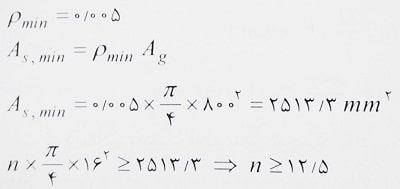 ρmin = ۰/۰۰۵
As,min = ρmin Ag
As,min = ۰/۰۰۵ × π/۴ × ۸۰۰² = ۲۵۱۳/۳ mm²
n × π/۴ × ۱۶² ≥ ۲۵۱۳/۳ ⇒ n ≥ ۱۲/۵